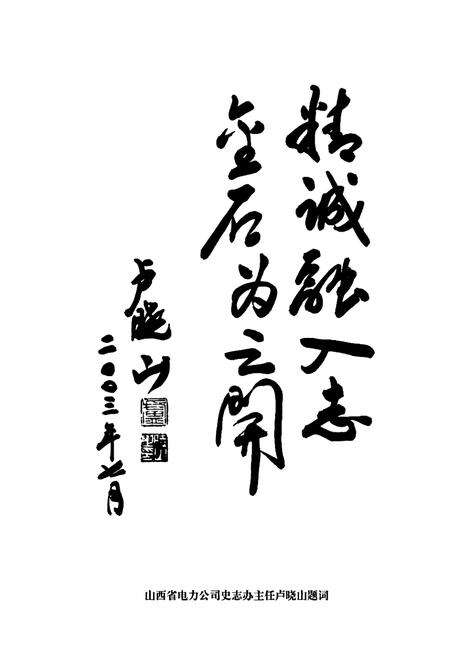 精诚融入志
金石为之開
卢晓山
二00三年七月
山西省电力公司史志办主任卢晓山题词